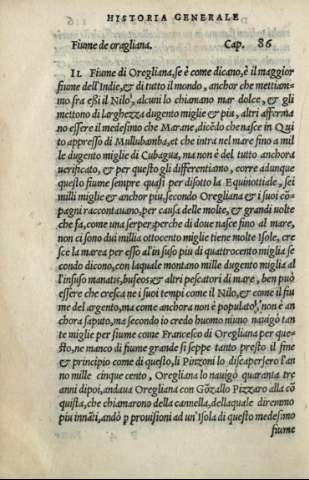 HISTORIA GENERALE
Fiume de oragliana. Cap. 86
IL Fiume di Oregliana, se è come dicano, è il maggior
fiume dell'Indie, & di tutto il mondo, anchor che mettiam-
mo fra eßi il Nilo, alcuni lo chiamano mar dolce, & gli
mettono di larghezza dugento miglie & piu, altri afferma
no essere il medesimo che Marane, dicẽdo che nasce in Qui
to appresso di Mullubamba, et che intra nel mare fino a mil
le dugento miglie di Cubagua, ma non è del tutto anchora
uerificato, & per questo gli differentiano, corre adunque
questo fiume sempre quasi per disotto la Equinottiale, sei
milli miglie & anchor piu, secondo Oregliana & i suoi cõ-
pagni raccontauano, per causa delle molte, & grandi uolte
che fa, come una serpe, perche di doue nasce fino al mare,
non ci sono dui millia ottocento miglie tiene molte Isole, cre
sce la marea per esso all'in suso piu di quattrocento miglia se
condo dicono, con laquale montano mille dugento miglia al
l'insuso manatus, bufeos & altri pescatori di mare, ben può
essere che cresca ne i suoi tempi come il Nilo, & come il fiu
me del argento, ma come anchora non è populato, non è an
chora saputo, ma secondo io credo huomo niuno nauigò tan
te miglie per fiume come Francesco di Oregliana per que-
sto, ne manco di fiume grande si seppe tanto presto il fine
& principio come di questo, li Pinzoni lo discopersero l'an
no mille cinque cento, Oregliana lo nauigò quaranta tre
anni dipoi, andaua Oregliana con Gõzallo Pizzaro alla cõ
quista, che chiamarono della cannella, dellaquale diremmo
piu innãti, andò p prouisioni ad un'Isola di questo medesimo
fiume